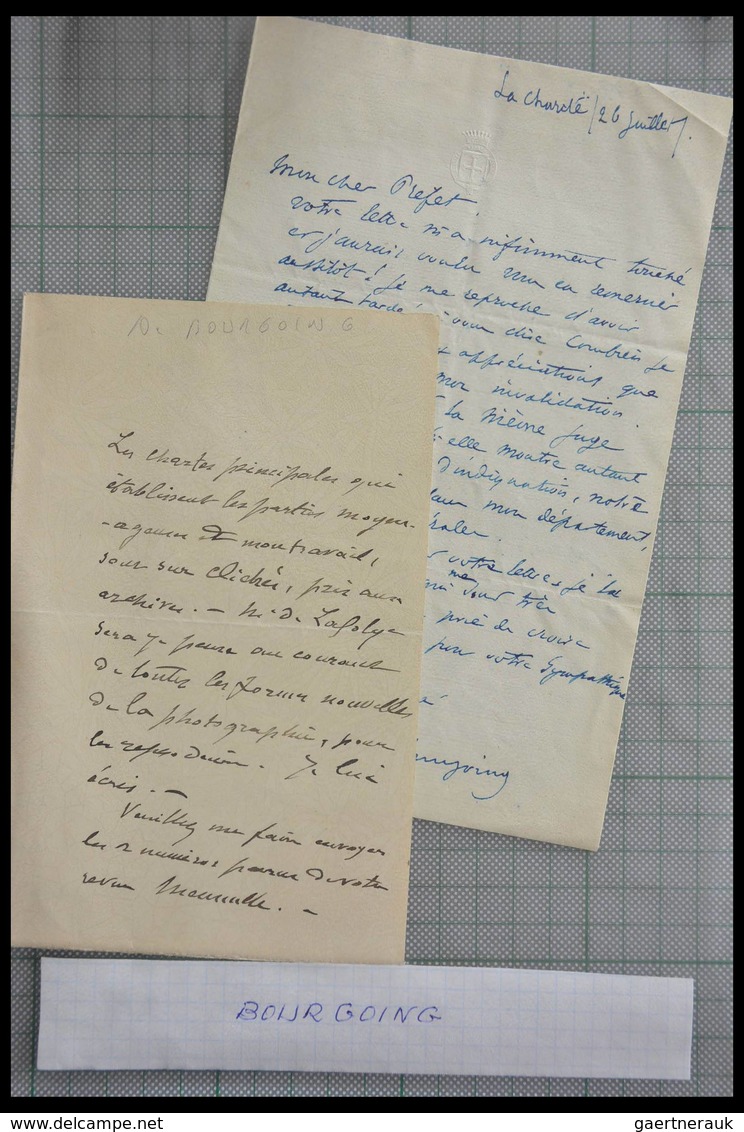 La Charité / 26 Juillet.
Mon cher Préfet,
Votre lettre m'a infiniment touché
et j'aurais voulu vous en remercier
aussitôt! Je me reproche d'avoir
autant tardé à vous dire combien je
appréciations que
mon invalidation.
la Nièvre juge
elle montre autant
d'indignation, notre
dans mon département,
votre lettre, je la
me très
prie de croire
pour votre sympathique
De BOURGOING
Les chartes principales qui
établissent les parties moyen-
-ageuses de montravail,
sont sur clichés, pris aux
archives. — Mr de
sera je pense au courant
de toutes les formes nouvelles
de la photographie, pour
les reproduire. Je lui
écris. —
Veuillez me faire envoyer
les 2 numéros parus de votre
revue mensuelle. —
BOURGOING
gaertnerauk